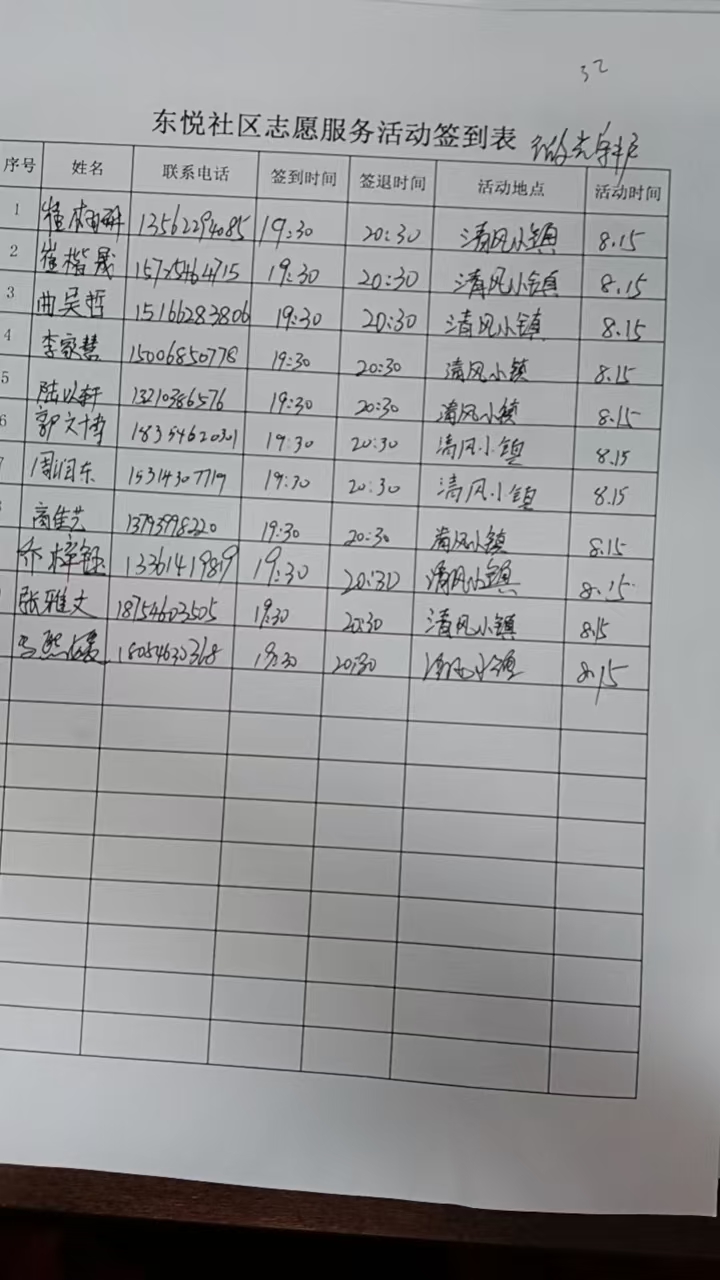 32
东悦社区志愿服务活动签到表
序号 姓名 联系电话 签到时间 签退时间 活动地点 活动时间
1 13562294085 19:30 20:30 清风小镇 8.15
2 崔楷晟 15725464715 19:30 20:30 清风小镇 8.15
3 曲昊哲 15166283806 19:30 20:30 清风小镇 8.15
4 李家慧 15006850778 19:30 20:30 清风小镇 8.15
5 陆以轩 13210386576 19:30 20:30 清风小镇 8.15
6 郭文博 18354620301 19:30 20:30 清风小镇 8.15
周润东 15314307719 19:30 20:30 清风小镇 8.15
商佳艺 13793998220 19:30 20:30 清风小镇 8.15
乔梓钰 13361419819 19:30 20:30 清风小镇 8.15
张雅文 18754603505 19:30 20:30 清风小镇 8.15
18054630368 19:30 20:30 清风小镇 8.15